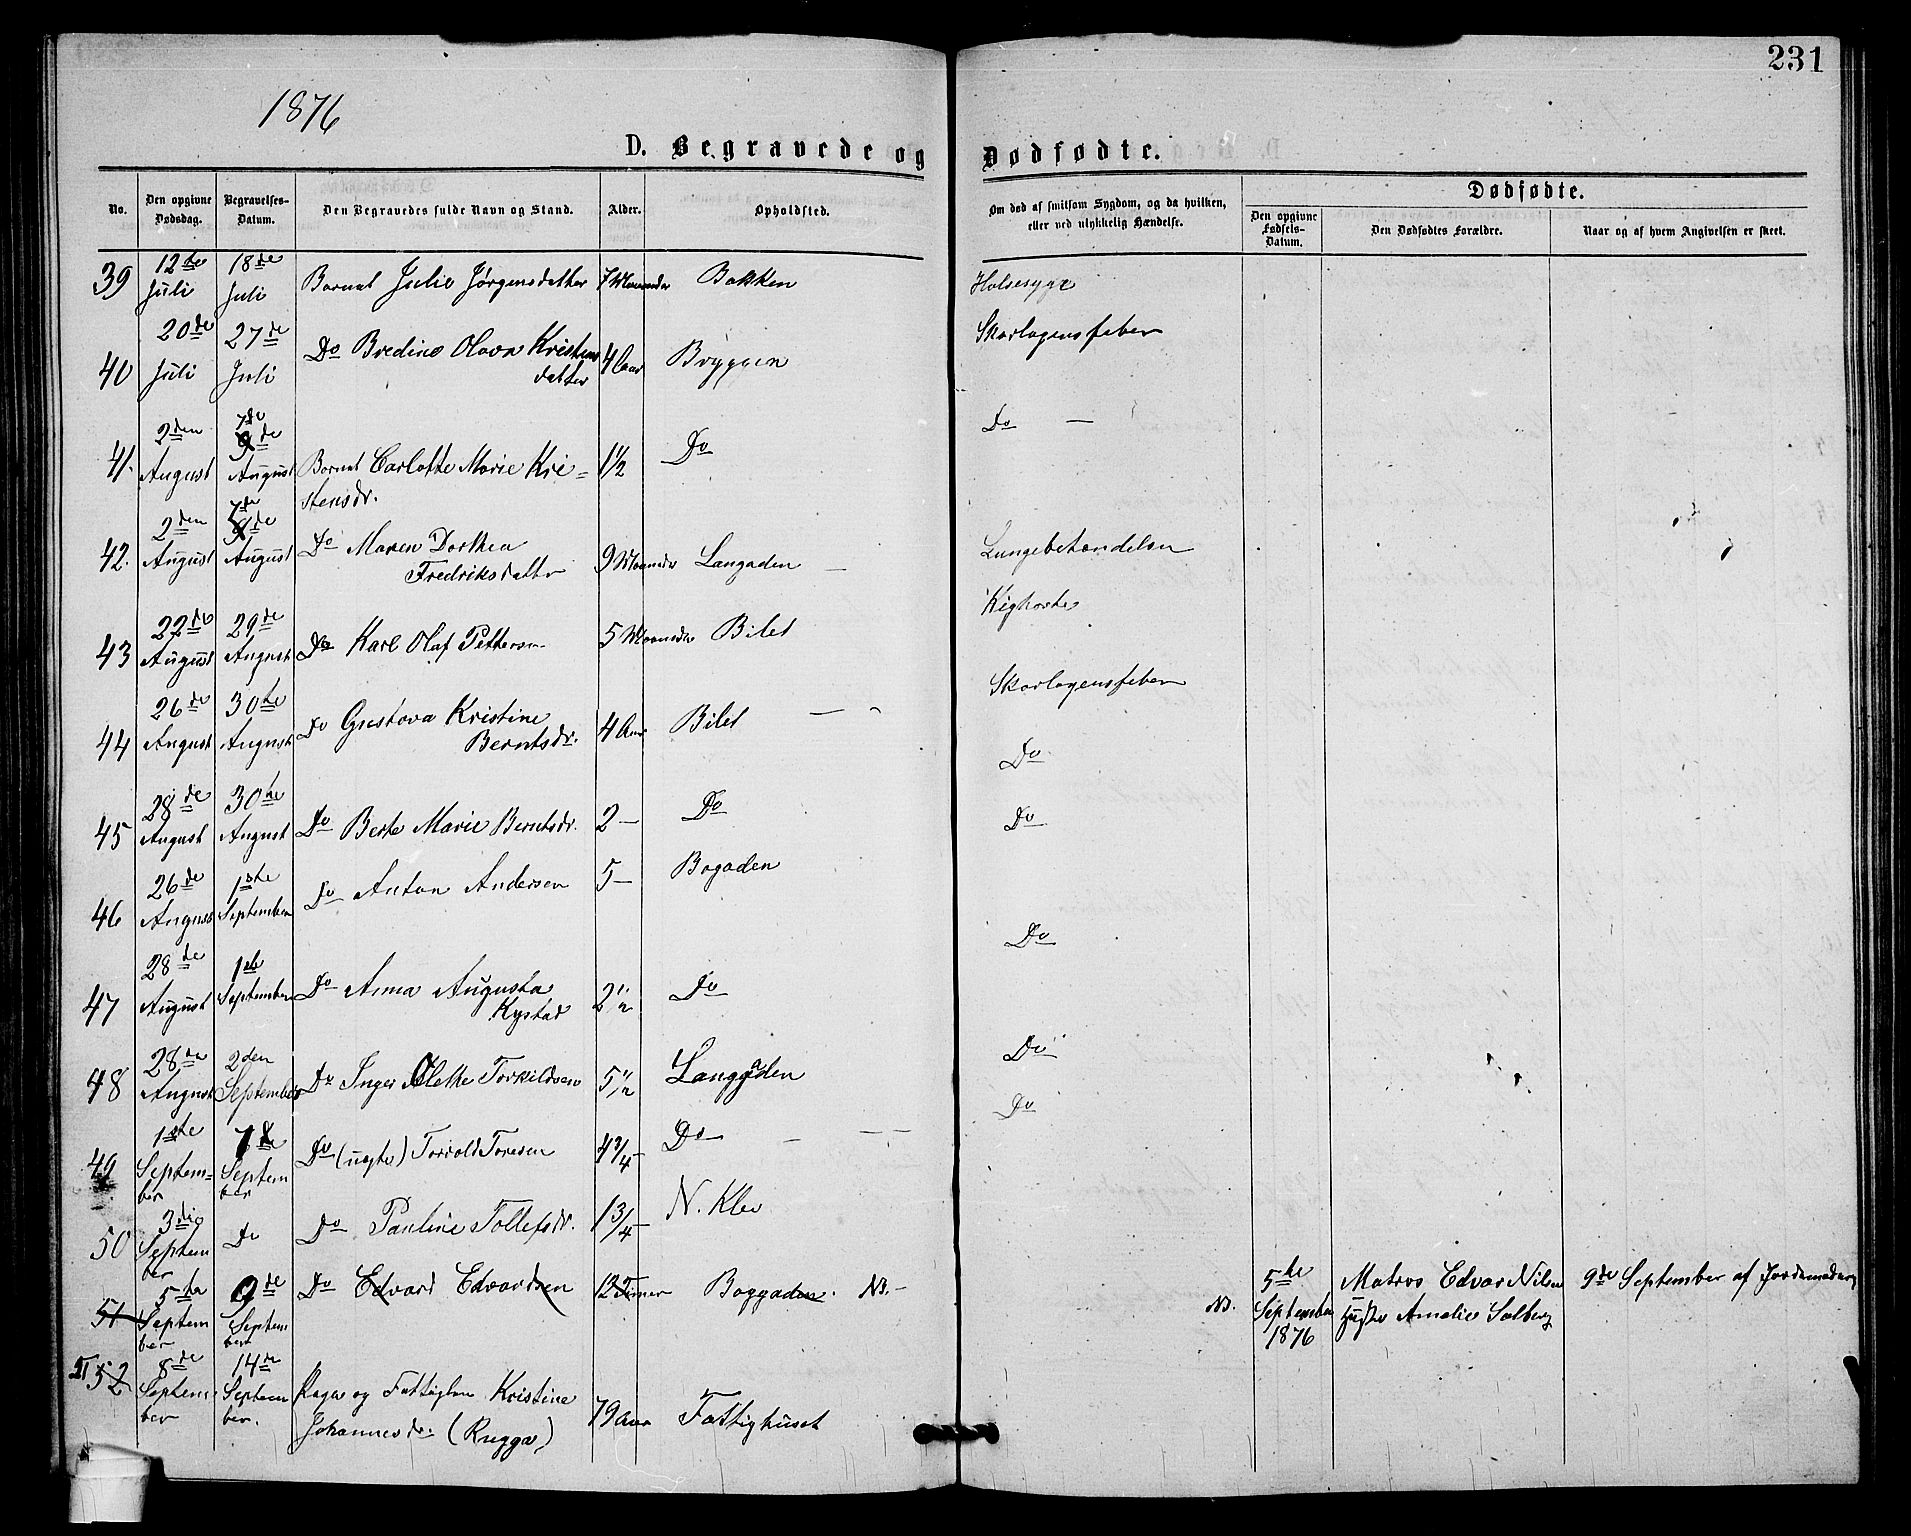 231
1876
D. Begravede og Dødfødte.
No.
Den opgivne Dødsdag.
Begravelses-Datum.
Den Begravedes fulde Navn og Stand.
Alder.
Opholdsted.
Om død af smitsom Sygdom, og da hvilken, eller ved ulykkelig Hændelse.
Dødfødte.
Den opgivne Fødsels-Datum.
Den Dødfødtes Forældre.
Naar og af hvem Angivelsen er skeet.
39 12te Juli 18de Juli Barnet Julie Jørgensdatter 7 Maaneder Bakken Halsesyge
40 20de Juli 27de Juli Do Bredine Olava Kristensdatter 4 Aar Bryggen Skarlagensfeber
41. 2den August 7de August Barnet Carlotte Marie Kri=
stensdr. 1½ Do Do —
42. 2den August 7de August Do Maren Dorthea
Fredriksdatter 9 Maaneder Langaden — Lungebetændelse
43 22de August 29de August Do Karl Olaf Pettersen 5 Maaneder Bilet Kighoste
44 26de August 30te August Do Gustava Kristine
Berntsdr. 4 Aar Bilet Skarlagensfeber
45 28de August 30te August Do Berte Marie Berntsdr. 2 — Do Do
46 26de August 1ste September Do Anton Andersen 5 — Bogaden Do
47 28de August 1ste September Do Anna Augusta
Kystad 2½ Do Do
48 28de August 2den September Do Inger Olette Torkildsen 5½ Langgaden Do
49 1ste September September Do (uægte) Torvald Toresen 4¾ — Do Do
50 3die September Do Do Pauline Tollefsdr. 1¾ — N. Klev
51 5te September 9de September Do Edvard Edvardsen 12 Timer Boggaden. NB. —
NB. 5te September 1876 Matros Edvar Nilsen
Hustru Amalie Solberg 9de September af Jordemoderen
51 52 8de September 14de September Pige og Fattiglem Kristine
Johannesdr. (Rugga) 79 Aar Fattighuset